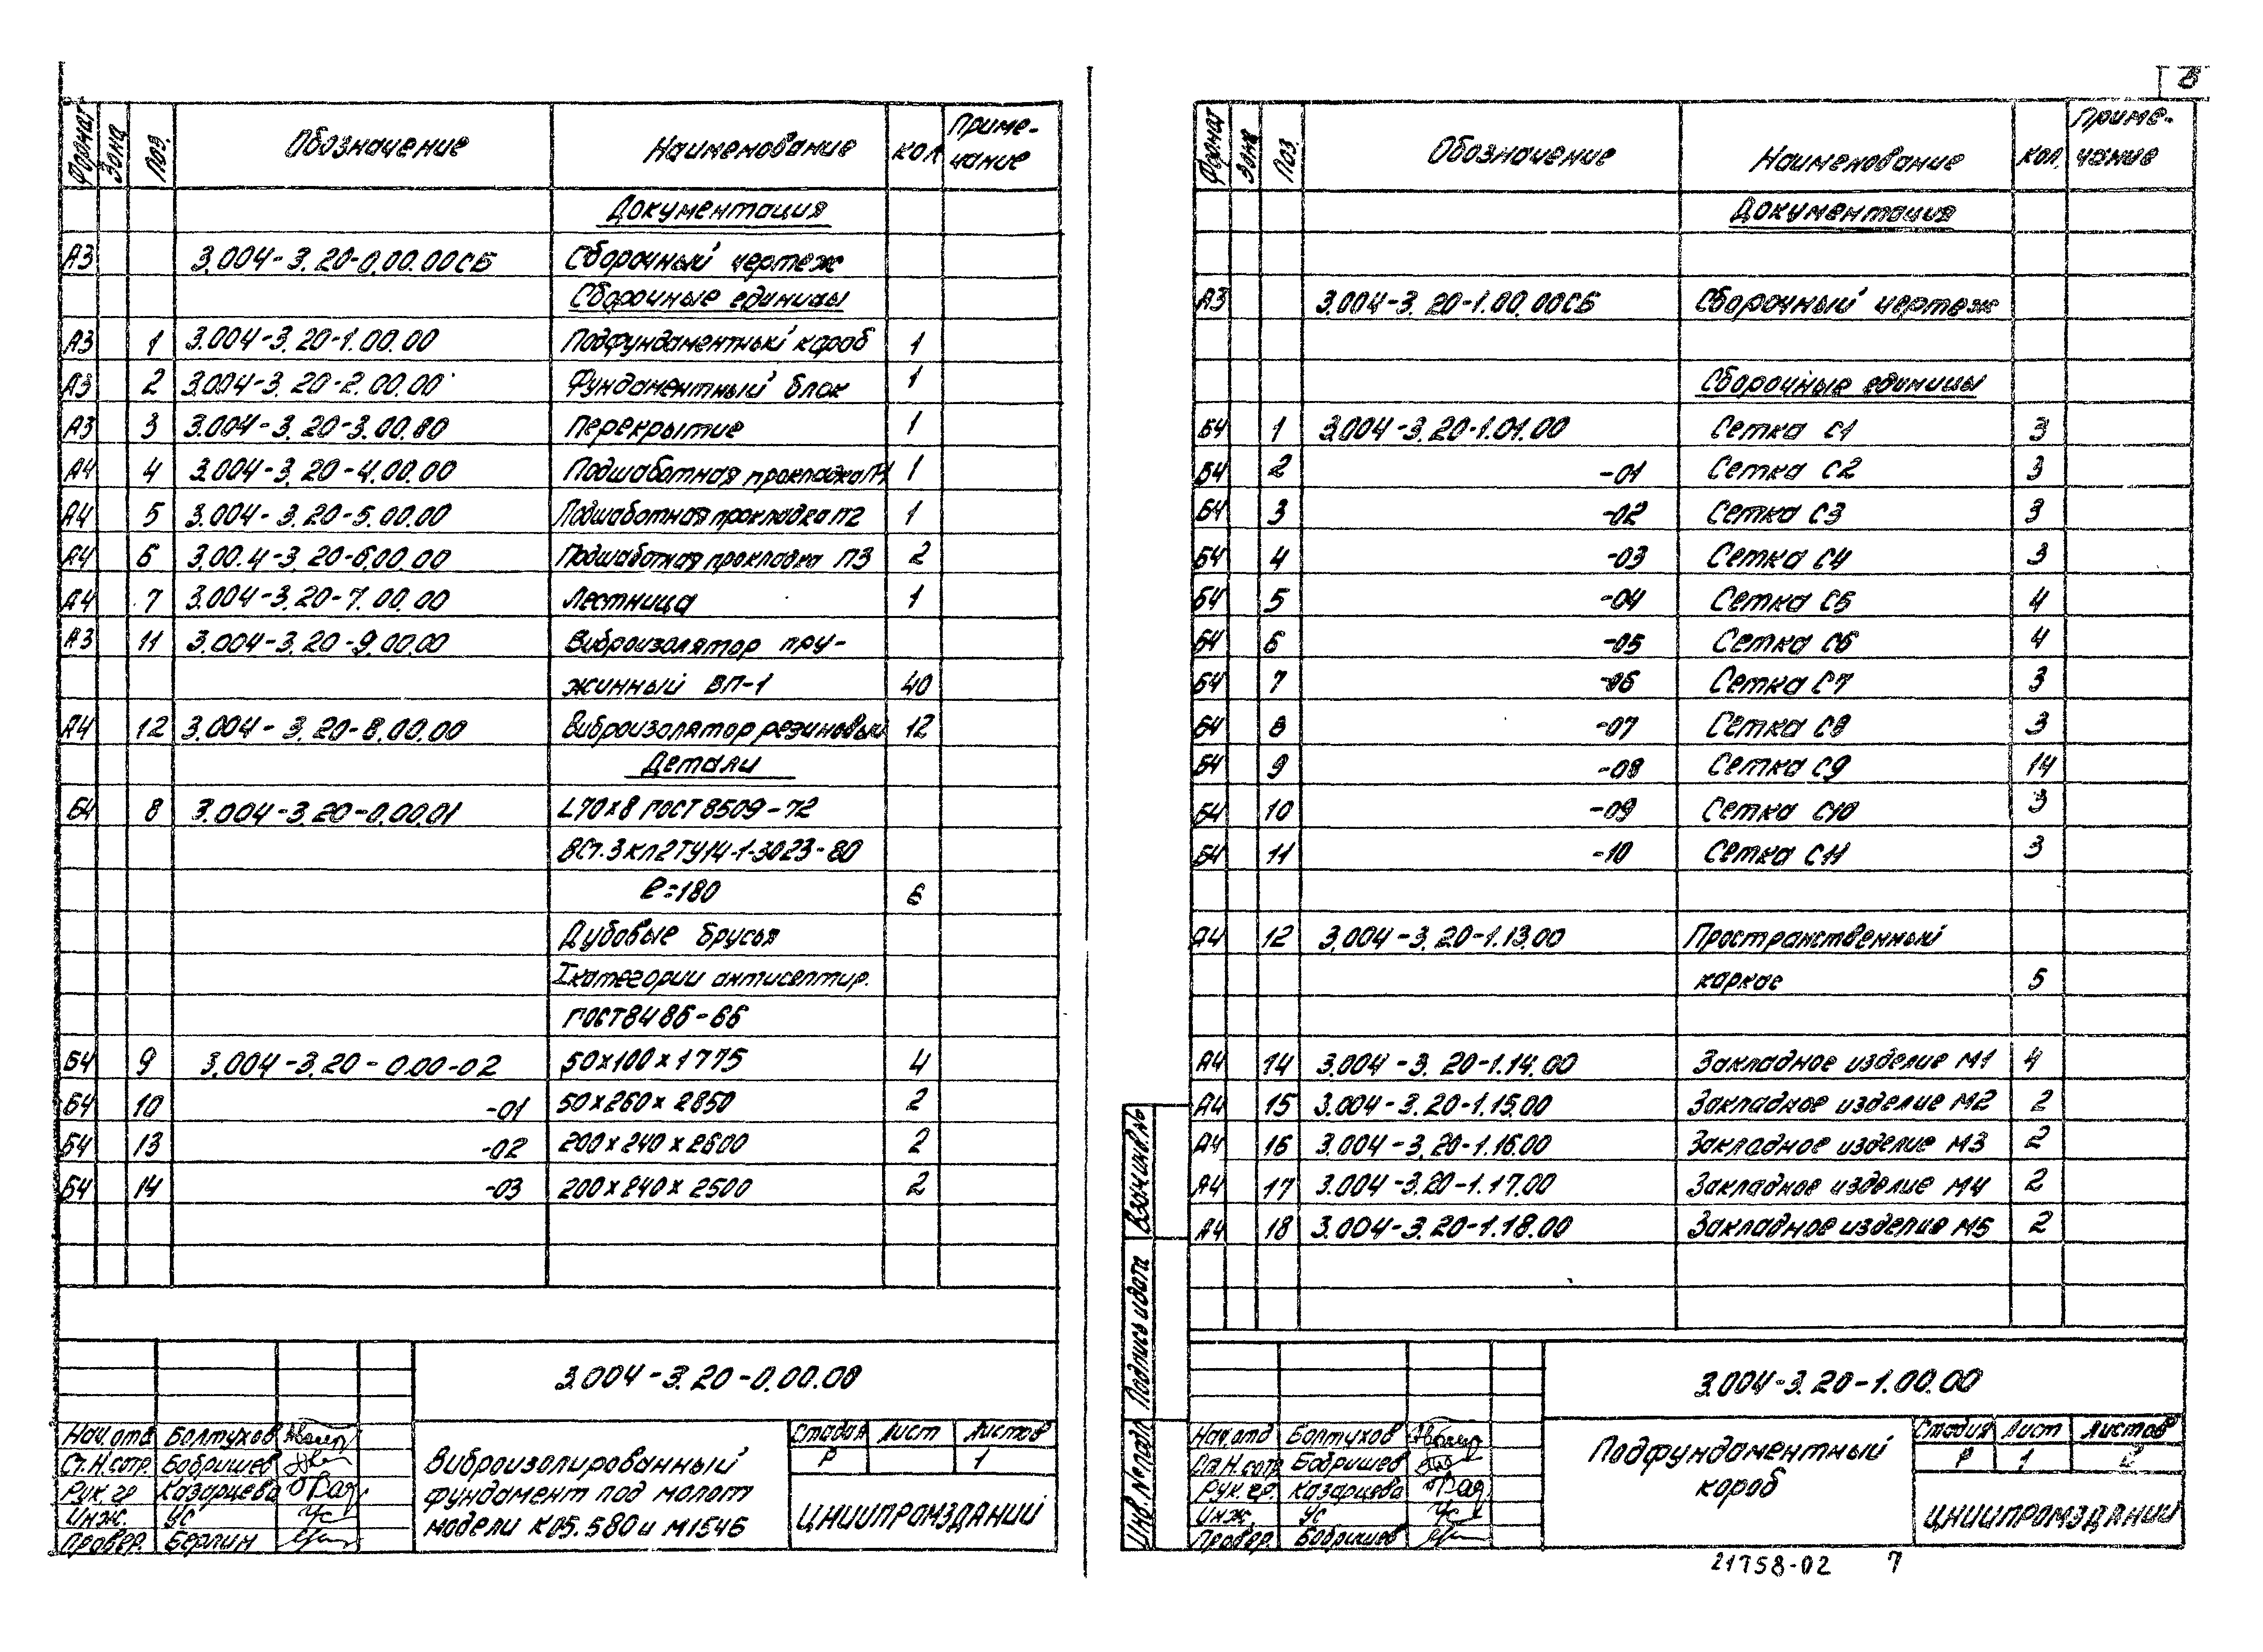 Формат Зона Поз. Обозначение Наименование Кол. Приме-
чание
Документация
А3 3.004-3.20-0.00.00СБ Сборочный чертеж
Сборочные единицы
А3 1 3.004-3.20-1.00.00 Подфундаментный короб 1
А3 2 3.004-3.20-2.00.00 Фундаментный блок 1
А3 3 3.004-3.20-3.00.00 Перекрытие 1
А4 4 3.004-3.20-4.00.00 Подшаботная прокладка П1 1
А4 5 3.004-3.20-5.00.00 Подшаботная прокладка П2 1
А4 6 3.00.4-3.20-6.00.00 Подшаботная прокладка П3 2
А4 7 3.004-3.20-7.00.00 Лестница 1
А3 11 3.004-3.20-9.00.00 Виброизолятор пру-
жинный ВП-1 40
А4 12 3.004-3.20-8.00.00 Виброизолятор резиновый 12
Детали
Б4 8 3.004-3.20-0.00.01 L70х8 ГОСТ 8509-72
ВСт.3кп2ТУ14-1-3023-80
ℓ=180 6
Дубовые брусья
I категории антисептир.
ГОСТ8486-66
Б4 9 3.004-3.20-0.00-02 50х100х1775 4
Б4 10 -01 50х260х2850 2
Б4 13 -02 200х240х2600 2
Б4 14 -03 200х240х2500 2
3.004-3.20-0.00.00
Нач.отд Болтухов
Ст.Н.сотр. Бобришев
Рук.гр Казарцева
Инж. Ус
Провер. Берлин
Виброизолированный
фундамент под молот
модели К05.580 и М1546
Стадия Лист Листов
Р 1
ЦНИИПРОМЗДАНИЙ
8
Формат Зона Поз. Обозначение Наименование Кол. Приме-
чание
Документация
А3 3.004-3.20-1.00.00СБ Сборочный чертеж
Сборочные единицы
Б4 1 3.004-3.20-1.01.00 Сетка С1 3
Б4 2 -01 Сетка С2 3
Б4 3 -02 Сетка С3 3
Б4 4 -03 Сетка С4 3
Б4 5 -04 Сетка С5 4
Б4 6 -05 Сетка С6 4
Б4 7 -06 Сетка С7 3
Б4 8 -07 Сетка С8 3
Б4 9 -08 Сетка С9 14
Б4 10 -09 Сетка С10 3
Б4 11 -10 Сетка С11 3
А4 12 3.004-3.20-1.13.00 Пространственный
каркас 5
А4 14 3.004-3.20-1.14.00 Закладное изделие М1 4
А4 15 3.004-3.20-1.15.00 Закладное изделие М2 2
А4 16 3.004-3.20-1.16.00 Закладное изделие М3 2
А4 17 3.004-3.20-1.17.00 Закладное изделие М4 2
А4 18 3.004-3.20-1.18.00 Закладное изделие М5 2
Инв.№подл Подпись и дата Взам.инв.№
3.004-3.20-1.00.00
Нач.отд Болтухов
Н.сотр Бобришев
Рук.гр. Казарцева
Инж. Ус
Провер. Бобришев
Подфундаментный
короб
Стадия Лист Листов
Р 1 2
ЦНИИПРОМЗДАНИЙ
21758-02 7